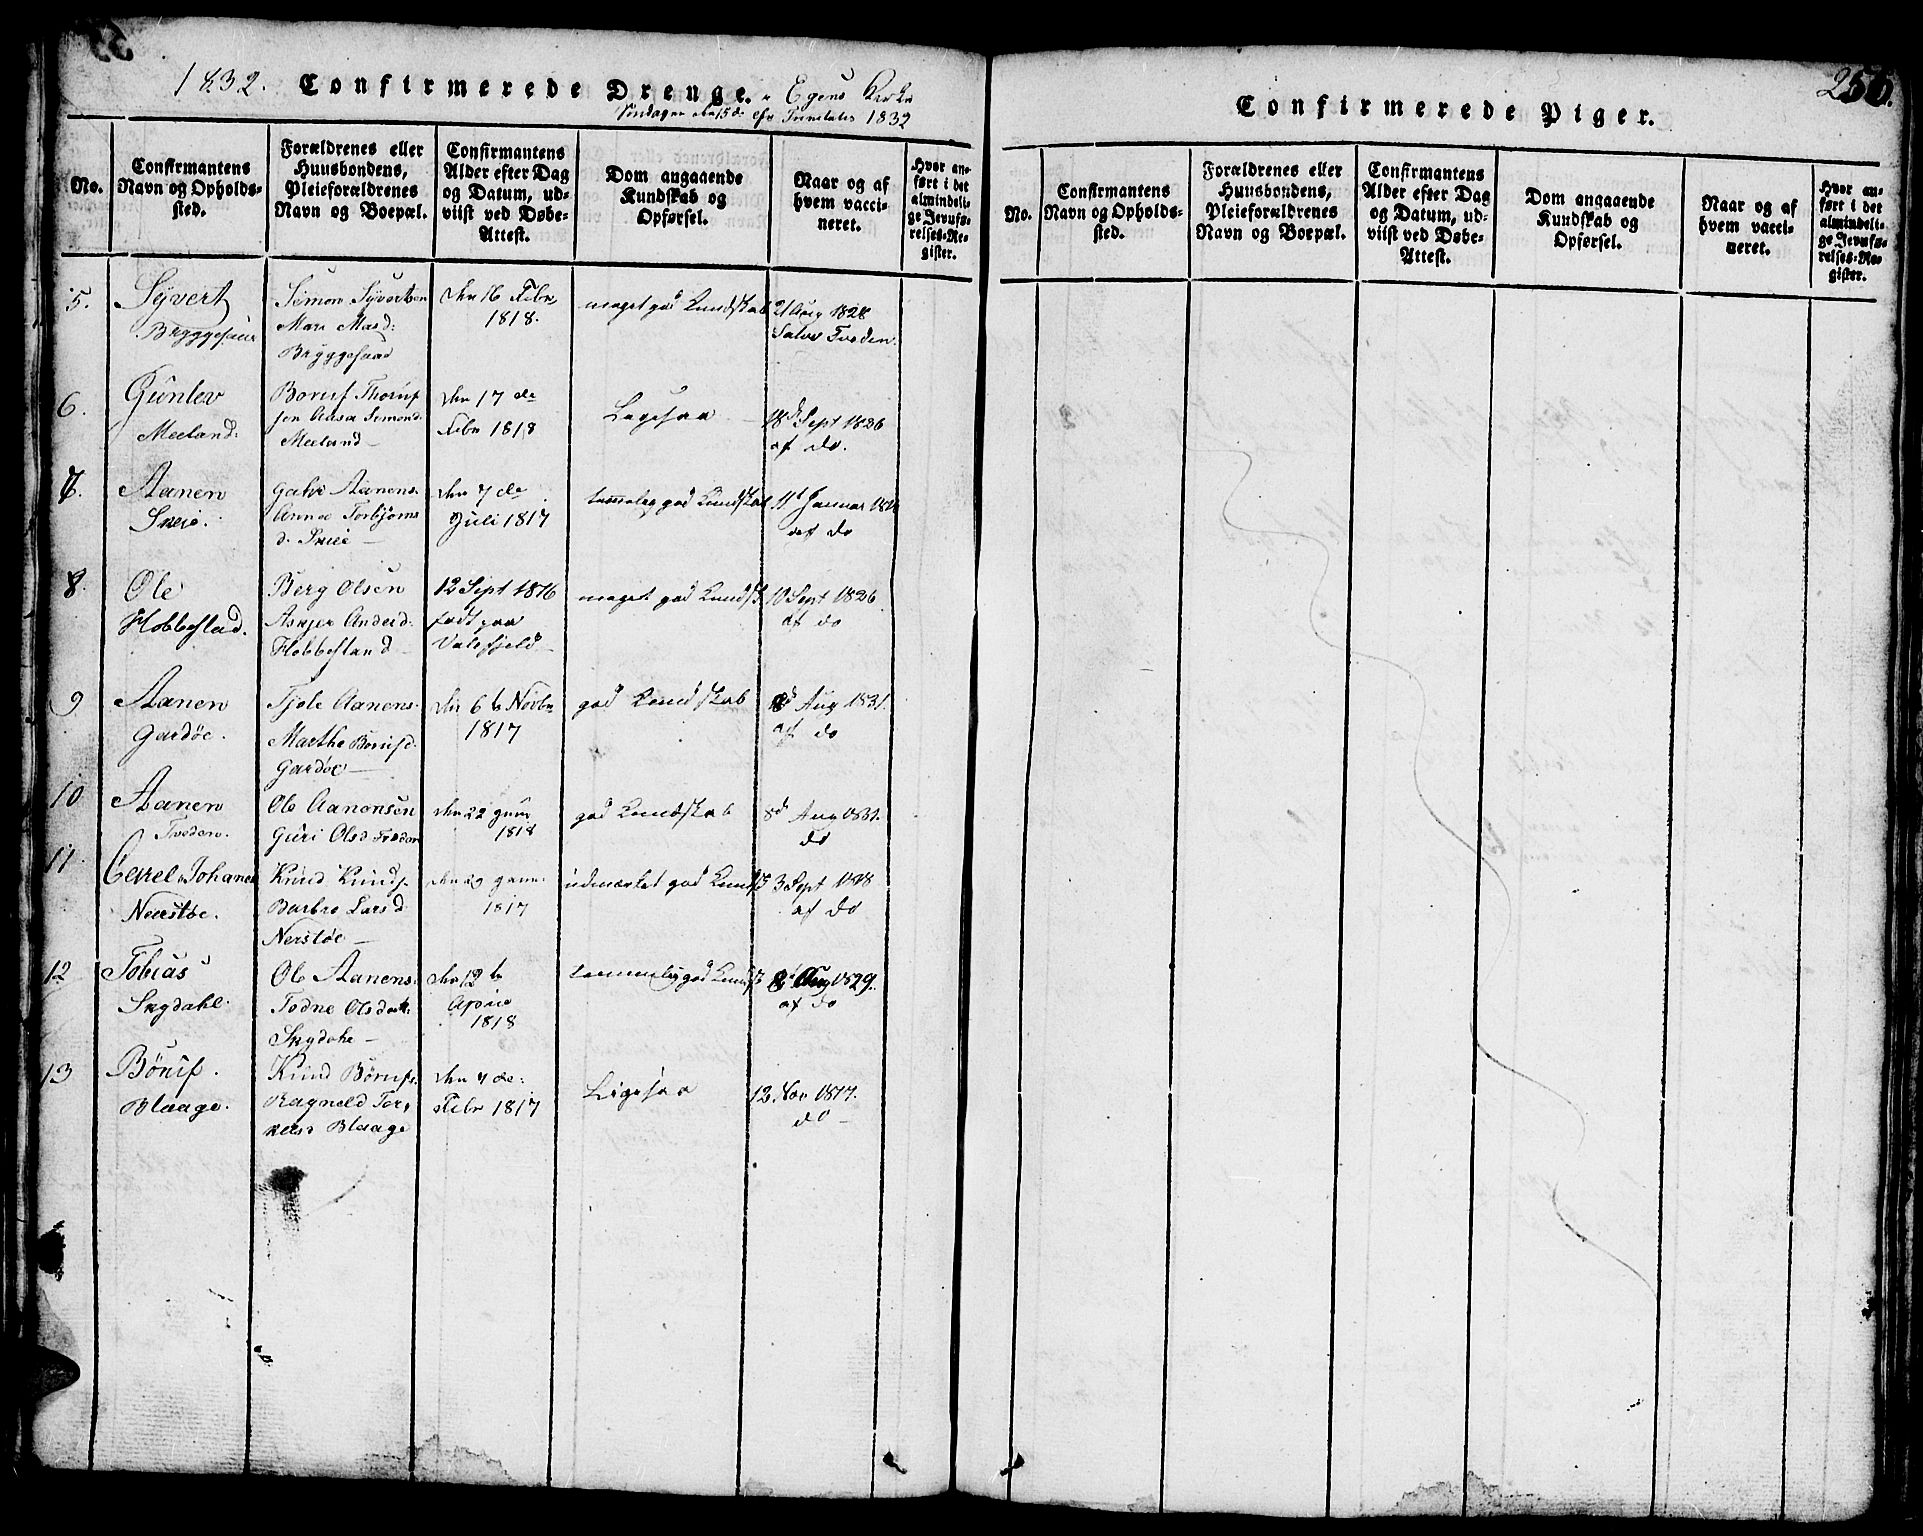 1832. Confirmerede Drenge. i Egens Kirke
Søndagen den 15de efr Trinitatis 1832
No.
Confirmantens Navn og Opholds-sted.
Forældrenes eller Huusbondens, Pleieforældrenes Navn og Boepæl.
Confirmantens Alder efter Dag og Datum, ud-viist ved Døbe-Attest.
Dom angaaende Kundskab og Opførsel.
Naar og af hvem vacci-neret.
Hvor an-ført i det almindeli-ge Jevnfø-relses-Re-gister.
5.
Syvert
Bryggesaae
Simon Syvertsen
Mari Masd:
Bryggesaae
den 16 Febr
1818.
maget god Kundskab
21 Aug 1828
Salve Tveden.
6.
Gunlev
Meeland.
Boruf Thoruf
sen Aasa Simond
Meeland
den 17 de
Febr 1818
Ligesaa
18d Sept 1826
af do.
7.
Aanen
Sneie.
Aanens.
Anne Torbjørns
d. Sneie
den 7 de
Juli 1817
temmelig god Kundskab
11t Januar
af do
8.
Ole
Hobbesland.
Berg Olsen
Asbjør Andersd.
Hobbesland
12 Sept 1816
født paa
Valefjeld
maget god Kundsk
10 Sept 1826
af do
9
Aanen
Gardøe.
Tjøle Aanens.
Marthe Borufsd.
Gardøe
den 6 te Novbr
1817
god Kundskab
8d Aug 1831.
af do
10
Aanen
Tveden.
Ole Aanensen
Guri Olsd Tveden
den 22
1818
god Kundskab
8d Aug 1831.
do
11
Carel Johan
Neerstøe.
Knud Knuds.
Barbro Larsd
Nerstøe
1817
udmærket god Kundsk
3 Sept 1818
af do
12
Tobias
Skydahl.
Ole Aanens.
Todne Olsdatt:
Skydahe
den 12 te
April
1818
temmelig god Kundsk
8d Aug 1829.
af do
13
Børuf.
Blaage.
Knud Børufs.
Ragneld Ter,
kelsd Blaage
den 7 de:
Febr 1817
Ligesaa
12 Nov 1817.
do
255.
Confirmerede Piger.
No.
Confirmantens Navn og Opholds-sted.
Forældrenes eller Huusbondens, Pleieforældrenes Navn og Boepæl.
Confirmantens Alder efter Dag og Datum, ud-viist ved Døbe-Attest.
Dom angaaende Kundskab og Opførsel.
Naar og af hvem vacci-neret.
Hvor an-ført i det almindeli-ge Jevnfø-relses-Re-gister.